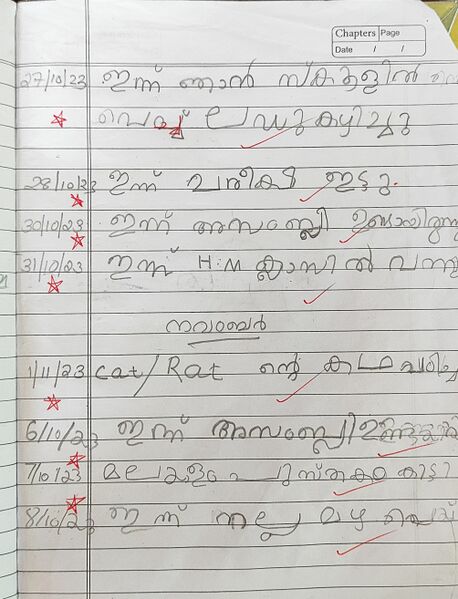 Chapters Page
Date / /
27/10/23 ഇന്ന് ഞാൻ സ്കൂളിൽ
ലഡു കഴിച്ചു
28/10/23 ഇന്ന് പരീക്ഷ ഇട്ടു.
30/10/23 ഇന്ന് അസംബ്ലി ഉണ്ടായിരുന്നു
31/10/23 ഇന്ന് H:M ക്ലാസിൽ വന്നു
നവംബർ
1/11/23 cat/Rat ന്റെ കഥ പഠിച്ചു
6/10/23 ഇന്ന് അസംബ്ലി
7/10/23 മലയാളം പുസ്തകം കിട്ടി
8/10/23 ഇന്ന് നല്ല മഴ പെയ്